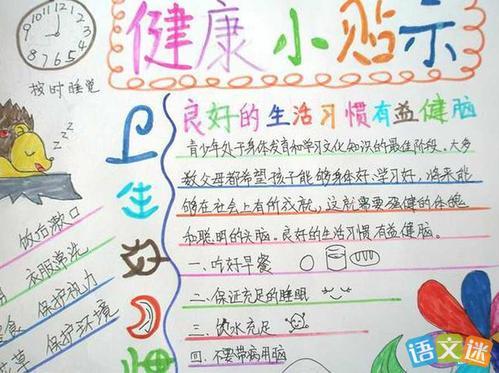 10 11 12 1 2 3 4 5 6 7 8 9
健康小贴示
按时睡觉
zzz
良好的生活习惯有益健脑
青少年处于身体发育和学习文化知识的最佳阶段。大多
数父母都希望孩子能够身体好、学习好，将来能
够在社会上有所成就，这就需要强健的体魄
和聪明的头脑。良好的生活习惯有益健脑。
一、吃好早餐
二、保证充足的睡眠
三、饮水充足
四、不要带病用脑
卫生好
饭后漱口
衣服常洗
食 保护视力
草 保护环境
语文迷